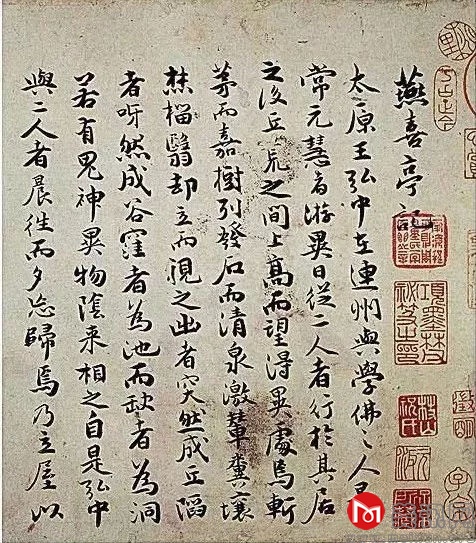 燕喜亭記
太原王弘中在連州與學佛〻人景
常元慧者游異日從二人者行於其居
之後丘荒之間上高而望得異處焉斬
茅而嘉樹列發石而清泉激輦糞壤
焚榴翳却立而視之出者突然成丘陷
者呀然成谷窪者為池而缺者為洞
若有鬼神異物陰来相之自是弘中
與二人者晨往而夕忘歸焉乃立屋以
項墨林
祕笈之印